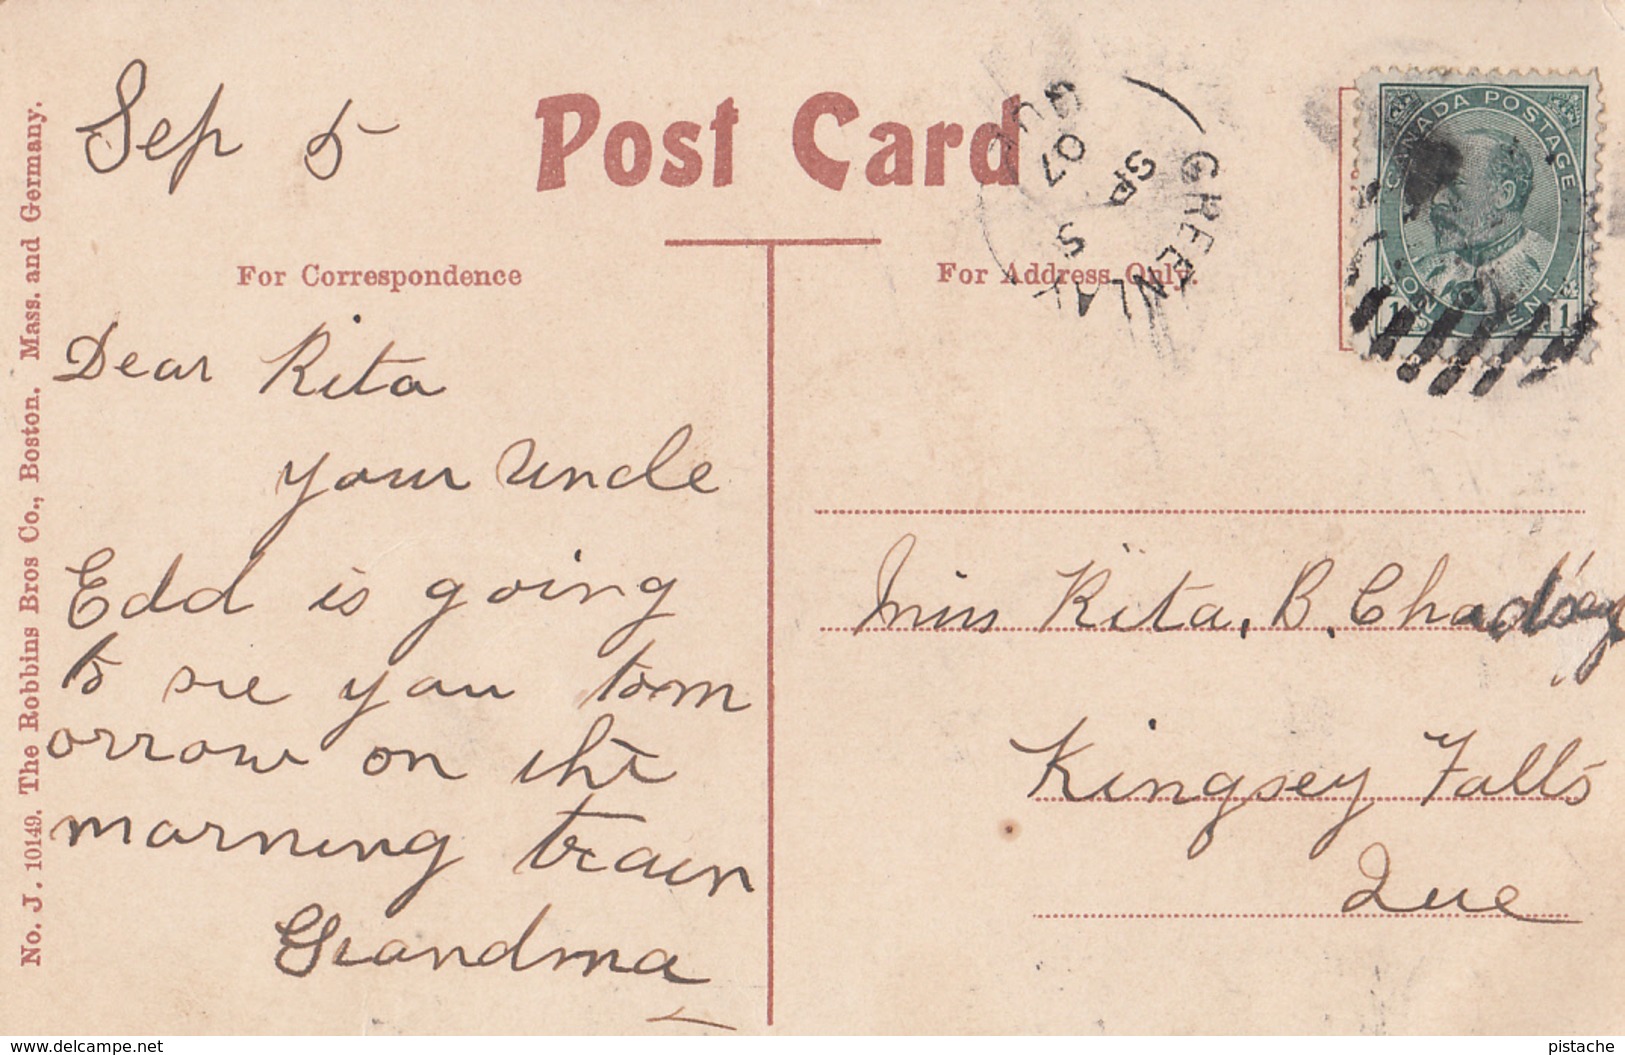 Post Card
For Correspondence
For Address Only.
Sep 5
Dear Rita
your Uncle
Edd is going
to see you tom
orrow on the
morning train
Grandma
Miss Rita, B, Chad
Kingsey Falls
Que
CANADA POSTAGE
ONE CENT
1 1
GREENLAY
SP 5
07
QUE
No. J. 10149. The Robbins Bros Co., Boston. Mass. and Germany.
www.delcampe.net
pistache